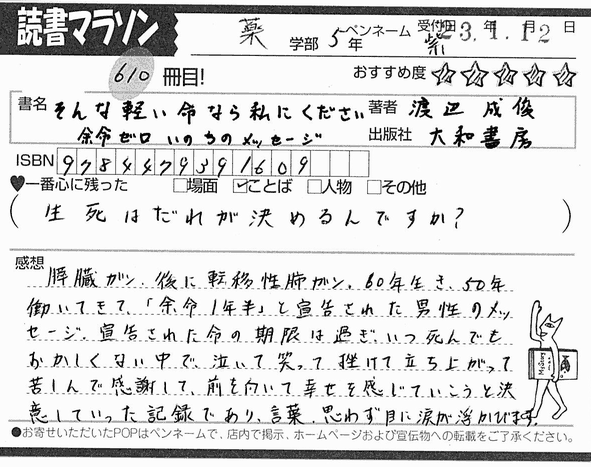 読書マラソン
薬 学部 5年 ペンネーム 紫 受付日 23年1月12日
610 冊目!
おすすめ度 ☆☆☆☆☆
書名 そんな軽い命なら私にください 著者 渡辺 成俊
余命ゼロ いのちのメッセージ 出版社 大和書房
ISBN 9784479391609
♥一番心に残った □場面 ☑ことば □人物 □その他
(生死はだれが決めるんですか?)
感想
膵臓ガン、後に転移性肺ガン。60年生き、50年
働いてきて、「余命1年半」と宣告された男性のメッ
セージ。宣告された命の期限は過ぎ、いつ死んでも
おかしくない中で、泣いて笑って挫けて立ち上がって
苦しんで感謝して、前を向いて幸せを感じていこうと決
意していった記録であり、言葉。思わず目に涙が浮かびます。
●お寄せいただいたPOPはペンネームで、店内で掲示、ホームページおよび宣伝物への転載をご了承ください。